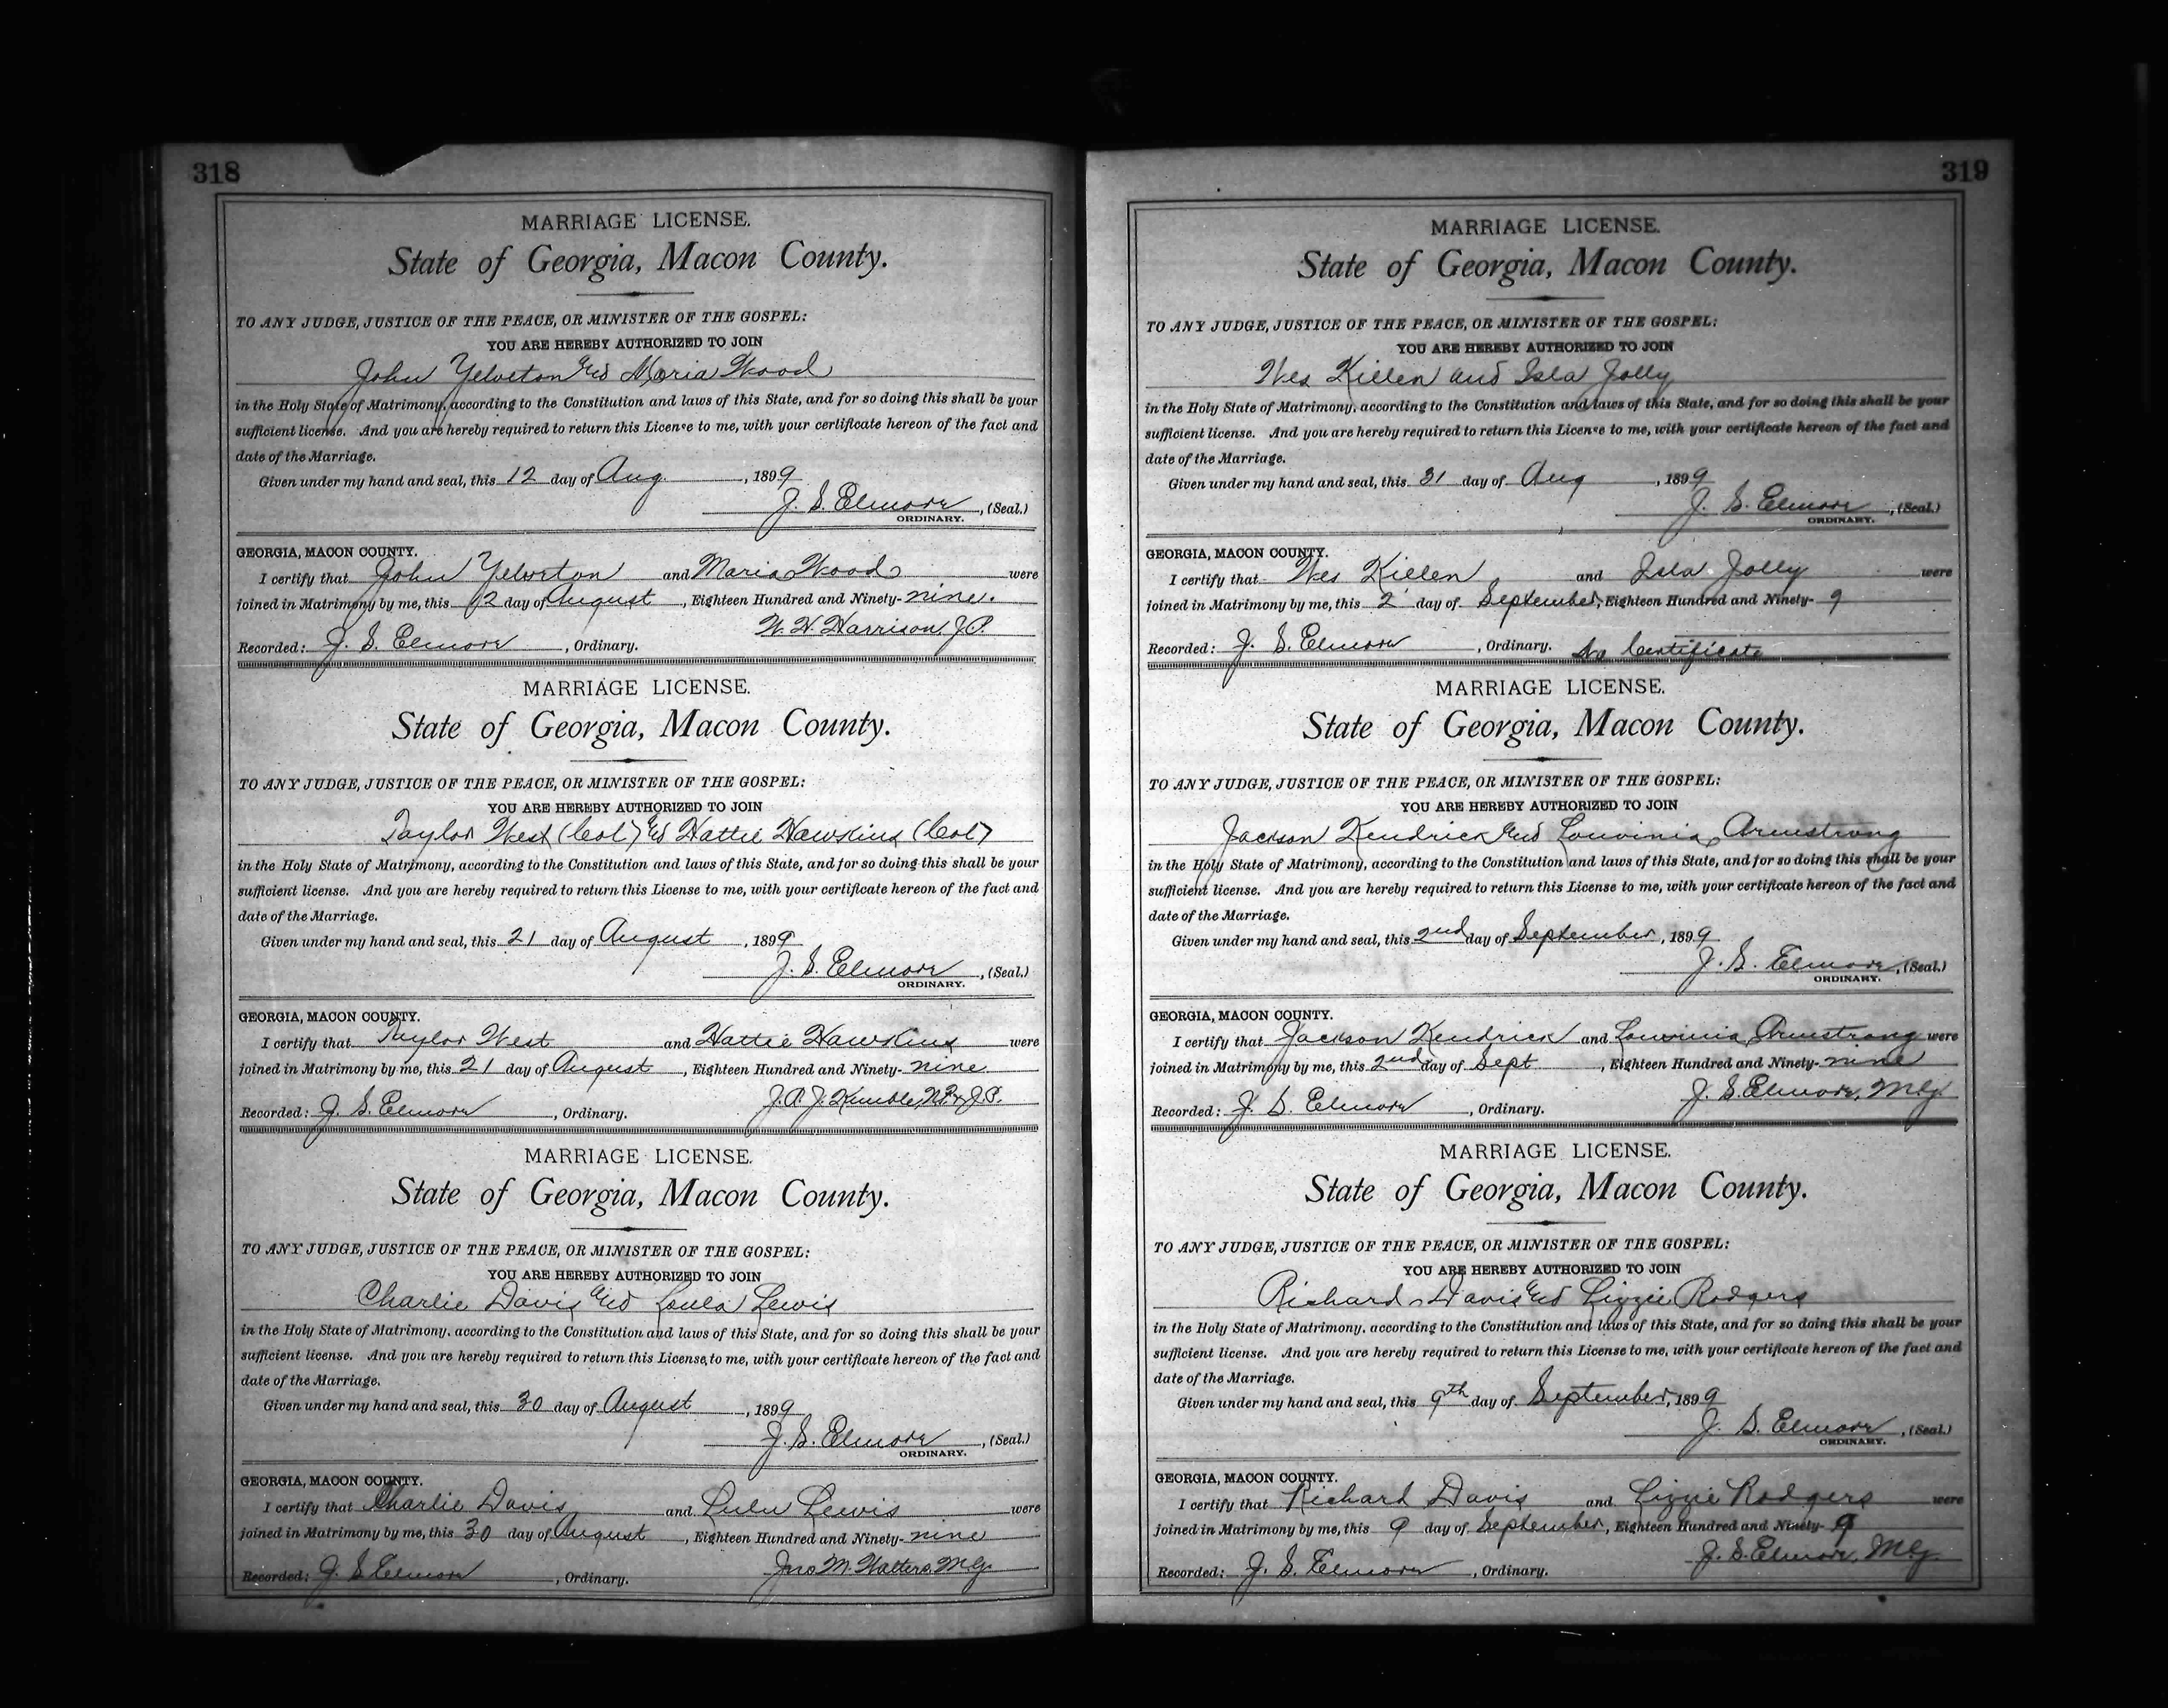 318
MARRIAGE LICENSE.
State of Georgia, Macon County.
TO ANY JUDGE, JUSTICE OF THE PEACE, OR MINISTER OF THE GOSPEL:
YOU ARE HEREBY AUTHORIZED TO JOIN
John Yelverton and Maria Wood
in the Holy State of Matrimony, according to the Constitution and laws of this State, and for so doing this shall be your
sufficient license. And you are hereby required to return this License to me, with your certificate hereon of the fact and
date of the Marriage.
Given under my hand and seal, this 12 day of Aug. , 1899
J. S. Elmore , (Seal.)
ORDINARY.
GEORGIA, MACON COUNTY.
I certify that John Yelverton and Maria Wood were
joined in Matrimony by me, this 12 day of August , Eighteen Hundred and Ninety- nine.
W. H. Harrison, J.P.
Recorded: J. S. Elmore , Ordinary.
MARRIAGE LICENSE.
State of Georgia, Macon County.
TO ANY JUDGE, JUSTICE OF THE PEACE, OR MINISTER OF THE GOSPEL:
YOU ARE HEREBY AUTHORIZED TO JOIN
Taylor West (Col) and Hattie Hawkins (Col)
in the Holy State of Matrimony, according to the Constitution and laws of this State, and for so doing this shall be your
sufficient license. And you are hereby required to return this License to me, with your certificate hereon of the fact and
date of the Marriage.
Given under my hand and seal, this 21 day of August , 1899
J. S. Elmore , (Seal.)
ORDINARY.
GEORGIA, MACON COUNTY.
I certify that Taylor West and Hattie Hawkins were
joined in Matrimony by me, this 21 day of August , Eighteen Hundred and Ninety- nine
J. A. J. Kimble, N.P. & J.P.
Recorded: J. S. Elmore , Ordinary.
MARRIAGE LICENSE.
State of Georgia, Macon County.
TO ANY JUDGE, JUSTICE OF THE PEACE, OR MINISTER OF THE GOSPEL:
YOU ARE HEREBY AUTHORIZED TO JOIN
Charlie Davis and Loula Lewis
in the Holy State of Matrimony, according to the Constitution and laws of this State, and for so doing this shall be your
sufficient license. And you are hereby required to return this License to me, with your certificate hereon of the fact and
date of the Marriage.
Given under my hand and seal, this 30 day of August , 1899
J. S. Elmore , (Seal.)
ORDINARY.
GEORGIA, MACON COUNTY.
I certify that Charlie Davis and Lulu Lewis were
joined in Matrimony by me, this 30 day of August , Eighteen Hundred and Ninety- nine
Jno M. Walters M.G.
Recorded: J. S. Elmore , Ordinary.
319
MARRIAGE LICENSE.
State of Georgia, Macon County.
TO ANY JUDGE, JUSTICE OF THE PEACE, OR MINISTER OF THE GOSPEL:
YOU ARE HEREBY AUTHORIZED TO JOIN
Wes Killen and Isla Jolly
in the Holy State of Matrimony, according to the Constitution and laws of this State, and for so doing this shall be your
sufficient license. And you are hereby required to return this License to me, with your certificate hereon of the fact and
date of the Marriage.
Given under my hand and seal, this 31 day of Aug , 1899
J. S. Elmore , (Seal.)
ORDINARY.
GEORGIA, MACON COUNTY.
I certify that Wes Killen and Isla Jolly were
joined in Matrimony by me, this 2 day of September, Eighteen Hundred and Ninety- 9
Recorded: J. S. Elmore , Ordinary. No Certificate
MARRIAGE LICENSE.
State of Georgia, Macon County.
TO ANY JUDGE, JUSTICE OF THE PEACE, OR MINISTER OF THE GOSPEL:
YOU ARE HEREBY AUTHORIZED TO JOIN
Jackson Kendrick and Louvinia Armstrong
in the Holy State of Matrimony, according to the Constitution and laws of this State, and for so doing this shall be your
sufficient license. And you are hereby required to return this License to me, with your certificate hereon of the fact and
date of the Marriage.
Given under my hand and seal, this 2nd day of September , 1899
J. S. Elmore , (Seal.)
ORDINARY.
GEORGIA, MACON COUNTY.
I certify that Jackson Kendrick and Louvinia Armstrong were
joined in Matrimony by me, this 2nd day of Sept , Eighteen Hundred and Ninety- nine
J. S. Elmore, M.G.
Recorded: J. S. Elmore , Ordinary.
MARRIAGE LICENSE.
State of Georgia, Macon County.
TO ANY JUDGE, JUSTICE OF THE PEACE, OR MINISTER OF THE GOSPEL:
YOU ARE HEREBY AUTHORIZED TO JOIN
Richard Davis and Lizzie Rodgers
in the Holy State of Matrimony, according to the Constitution and laws of this State, and for so doing this shall be your
sufficient license. And you are hereby required to return this License to me, with your certificate hereon of the fact and
date of the Marriage.
Given under my hand and seal, this 9th day of September, 1899
J. S. Elmore , (Seal.)
ORDINARY.
GEORGIA, MACON COUNTY.
I certify that Richard Davis and Lizzie Rodgers were
joined in Matrimony by me, this 9 day of September , Eighteen Hundred and Ninety- 9
J. S. Elmore, M.G.
Recorded: J. S. Elmore , Ordinary.